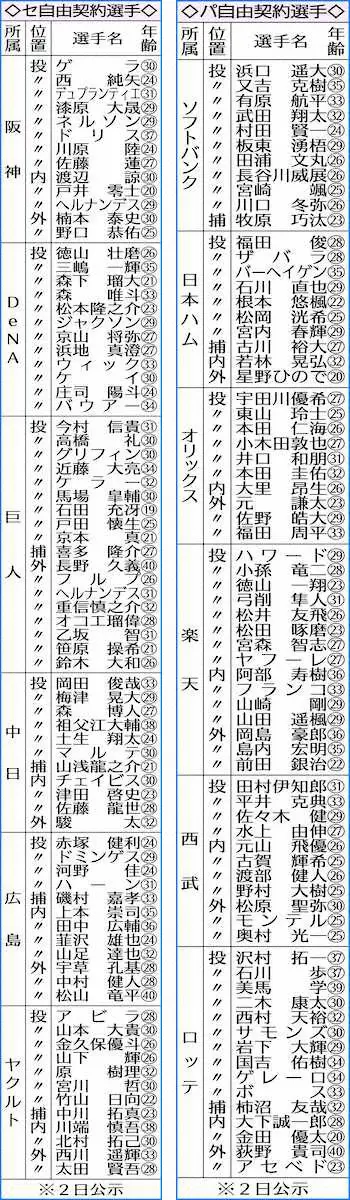 ◇セ自由契約選手◇
所属 位置 選手名 年齢
阪神
投 ゲラ ㉚
〃 西純矢 ㉔
〃 デュプランティエ ㉛
〃 漆原大晟 ㉙
〃 ネルソン ㉙
〃 ドリス ㊲
〃 川原陸 ㉔
〃 佐藤蓮 ㉗
内 渡辺諒 ㉚
〃 戸井零士 ⑳
〃 ヘルナンデス ㉙
外 楠本泰史 ㉚
〃 野口恭佑 ㉕
DeNA
投 徳山壮磨 ㉖
〃 三嶋一輝 ㉟
〃 森下瑠大 ㉑
〃 森唯斗 ㉝
〃 松本隆之介 ㉓
〃 ジャクソン ㉙
〃 京山将弥 ㉗
〃 浜地真澄 ㉗
〃 ウィック ㉝
〃 ケイ ㉚
〃 庄司陽斗 ㉔
〃 バウアー ㉞
巨人
投 今村信貴 ㉛
〃 高橋礼 ㉚
〃 グリフィン ㉚
〃 近藤大亮 ㉞
〃 ケラー ㉜
〃 馬場皐輔 ㉚
〃 石田充冴 ⑲
〃 戸田懐生 ㉕
〃 京本真 ㉑
捕 喜多隆介 ㉗
外 長野久義 ㊵
〃 フルプ ㉖
〃 ヘルナンデス ㉛
〃 重信慎之介 ㉜
〃 オコエ瑠偉 ㉘
〃 乙坂智 ㉛
〃 笹原操希 ㉑
〃 鈴木大和 ㉖
中日
投 岡田俊哉 ㉝
〃 梅津晃大 ㉙
〃 森博人 ㉗
〃 祖父江大輔 ㊳
〃 土生翔太 ㉔
〃 マルテ ㉚
捕 山浅龍之介 ㉑
内 チェイビス ㉚
〃 津田啓史 ㉓
〃 佐藤龍世 ㉘
外 駿太 ㉜
広島
投 赤塚健利 ㉔
〃 ドミンゲス ㉙
〃 河野佳 ㉔
〃 ハーン ㉛
捕 磯村嘉孝 ㉝
内 上本崇司 ㉟
〃 田中広輔 ㊱
〃 韮沢雄也 ㉔
〃 山足達也 ㉜
外 宇草孔基 ㉘
〃 中村健人 ㉘
〃 松山竜平 ㊵
ヤクルト
投 アビラ ㉘
〃 山本大貴 ㉚
〃 金久保優斗 ㉖
〃 山下輝 ㉖
〃 原樹理 ㉜
〃 宮川哲 ㉚
〃 竹山日向 ㉒
捕 中川拓真 ㉓
内 川端慎吾 ㊳
〃 北村拓己 ㉚
外 西川遥輝 ㉝
〃 太田賢吾 ㉘
※2日公示
◇パ自由契約選手◇
所属 位置 選手名 年齢
ソフトバンク
投 浜口遥大 ㉚
〃 又吉克樹 ㉟
〃 有原航平 ㉝
〃 武田翔太 ㉜
〃 村田賢一 ㉔
〃 板東湧梧 ㉙
〃 田浦文丸 ㉖
〃 長谷川威展 ㉖
〃 宮崎颯 ㉕
〃 川口冬弥 ㉖
捕 牧原巧汰 ㉓
日本ハム
投 福田俊 ㉘
〃 ザバラ ㉘
〃 バーヘイゲン ㉟
〃 石川直也 ㉙
〃 根本悠楓 ㉒
〃 松岡洸希 ㉕
〃 宮内春輝 ㉙
捕 古川裕大 ㉗
内 若林晃弘 ㉜
外 星野ひので ⑳
オリックス
投 宇田川優希 ㉗
〃 東山玲士 ㉕
〃 本田仁海 ㉖
〃 小木田敦也 ㉗
〃 井口和朋 ㉛
〃 本田圭佑 ㉜
内 大里昂生 ㉖
外 元謙太 ㉓
〃 佐野皓大 ㉙
〃 福田周平 ㉝
楽天
投 ハワード ㉙
〃 小孫竜二 ㉘
〃 徳山一翔 ㉓
〃 弓削隼人 ㉛
〃 松井友飛 ㉖
〃 松田啄磨 ㉓
〃 宮森智志 ㉗
〃 ヤフーレ ㉗
内 阿部寿樹 ㊱
〃 フランコ ㉝
〃 山崎剛 ㉙
〃 山田遥楓 ㉙
外 岡島豪郎 ㊱
〃 島内宏明 ㉟
〃 前田銀治 ㉒
西武
投 田村伊知郎 ㉛
〃 平井克典 ㉝
〃 佐々木健 ㉙
〃 水上由伸 ㉗
内 元山飛優 ㉖
〃 古賀輝希 ㉕
〃 渡部健人 ㉖
〃 野村大樹 ㉕
外 松原聖弥 ㉚
〃 モンテル ㉕
〃 奥村光一 ㉕
ロッテ
投 沢村拓一 ㊲
〃 石川歩 ㊲
〃 美馬学 ㊴
〃 二木康太 ㉚
〃 西村天裕 ㉜
〃 サモンズ ㉚
〃 岩下大輝 ㉙
〃 国吉佑樹 ㉞
〃 ゲレーロ ㉞
〃 ボス ㉝
捕 柿沼友哉 ㉜
内 大下誠一郎 ㉘
〃 金田優太 ⑳
外 荻野貴司 ㊵
〃 アセベド ㉓
※2日公示